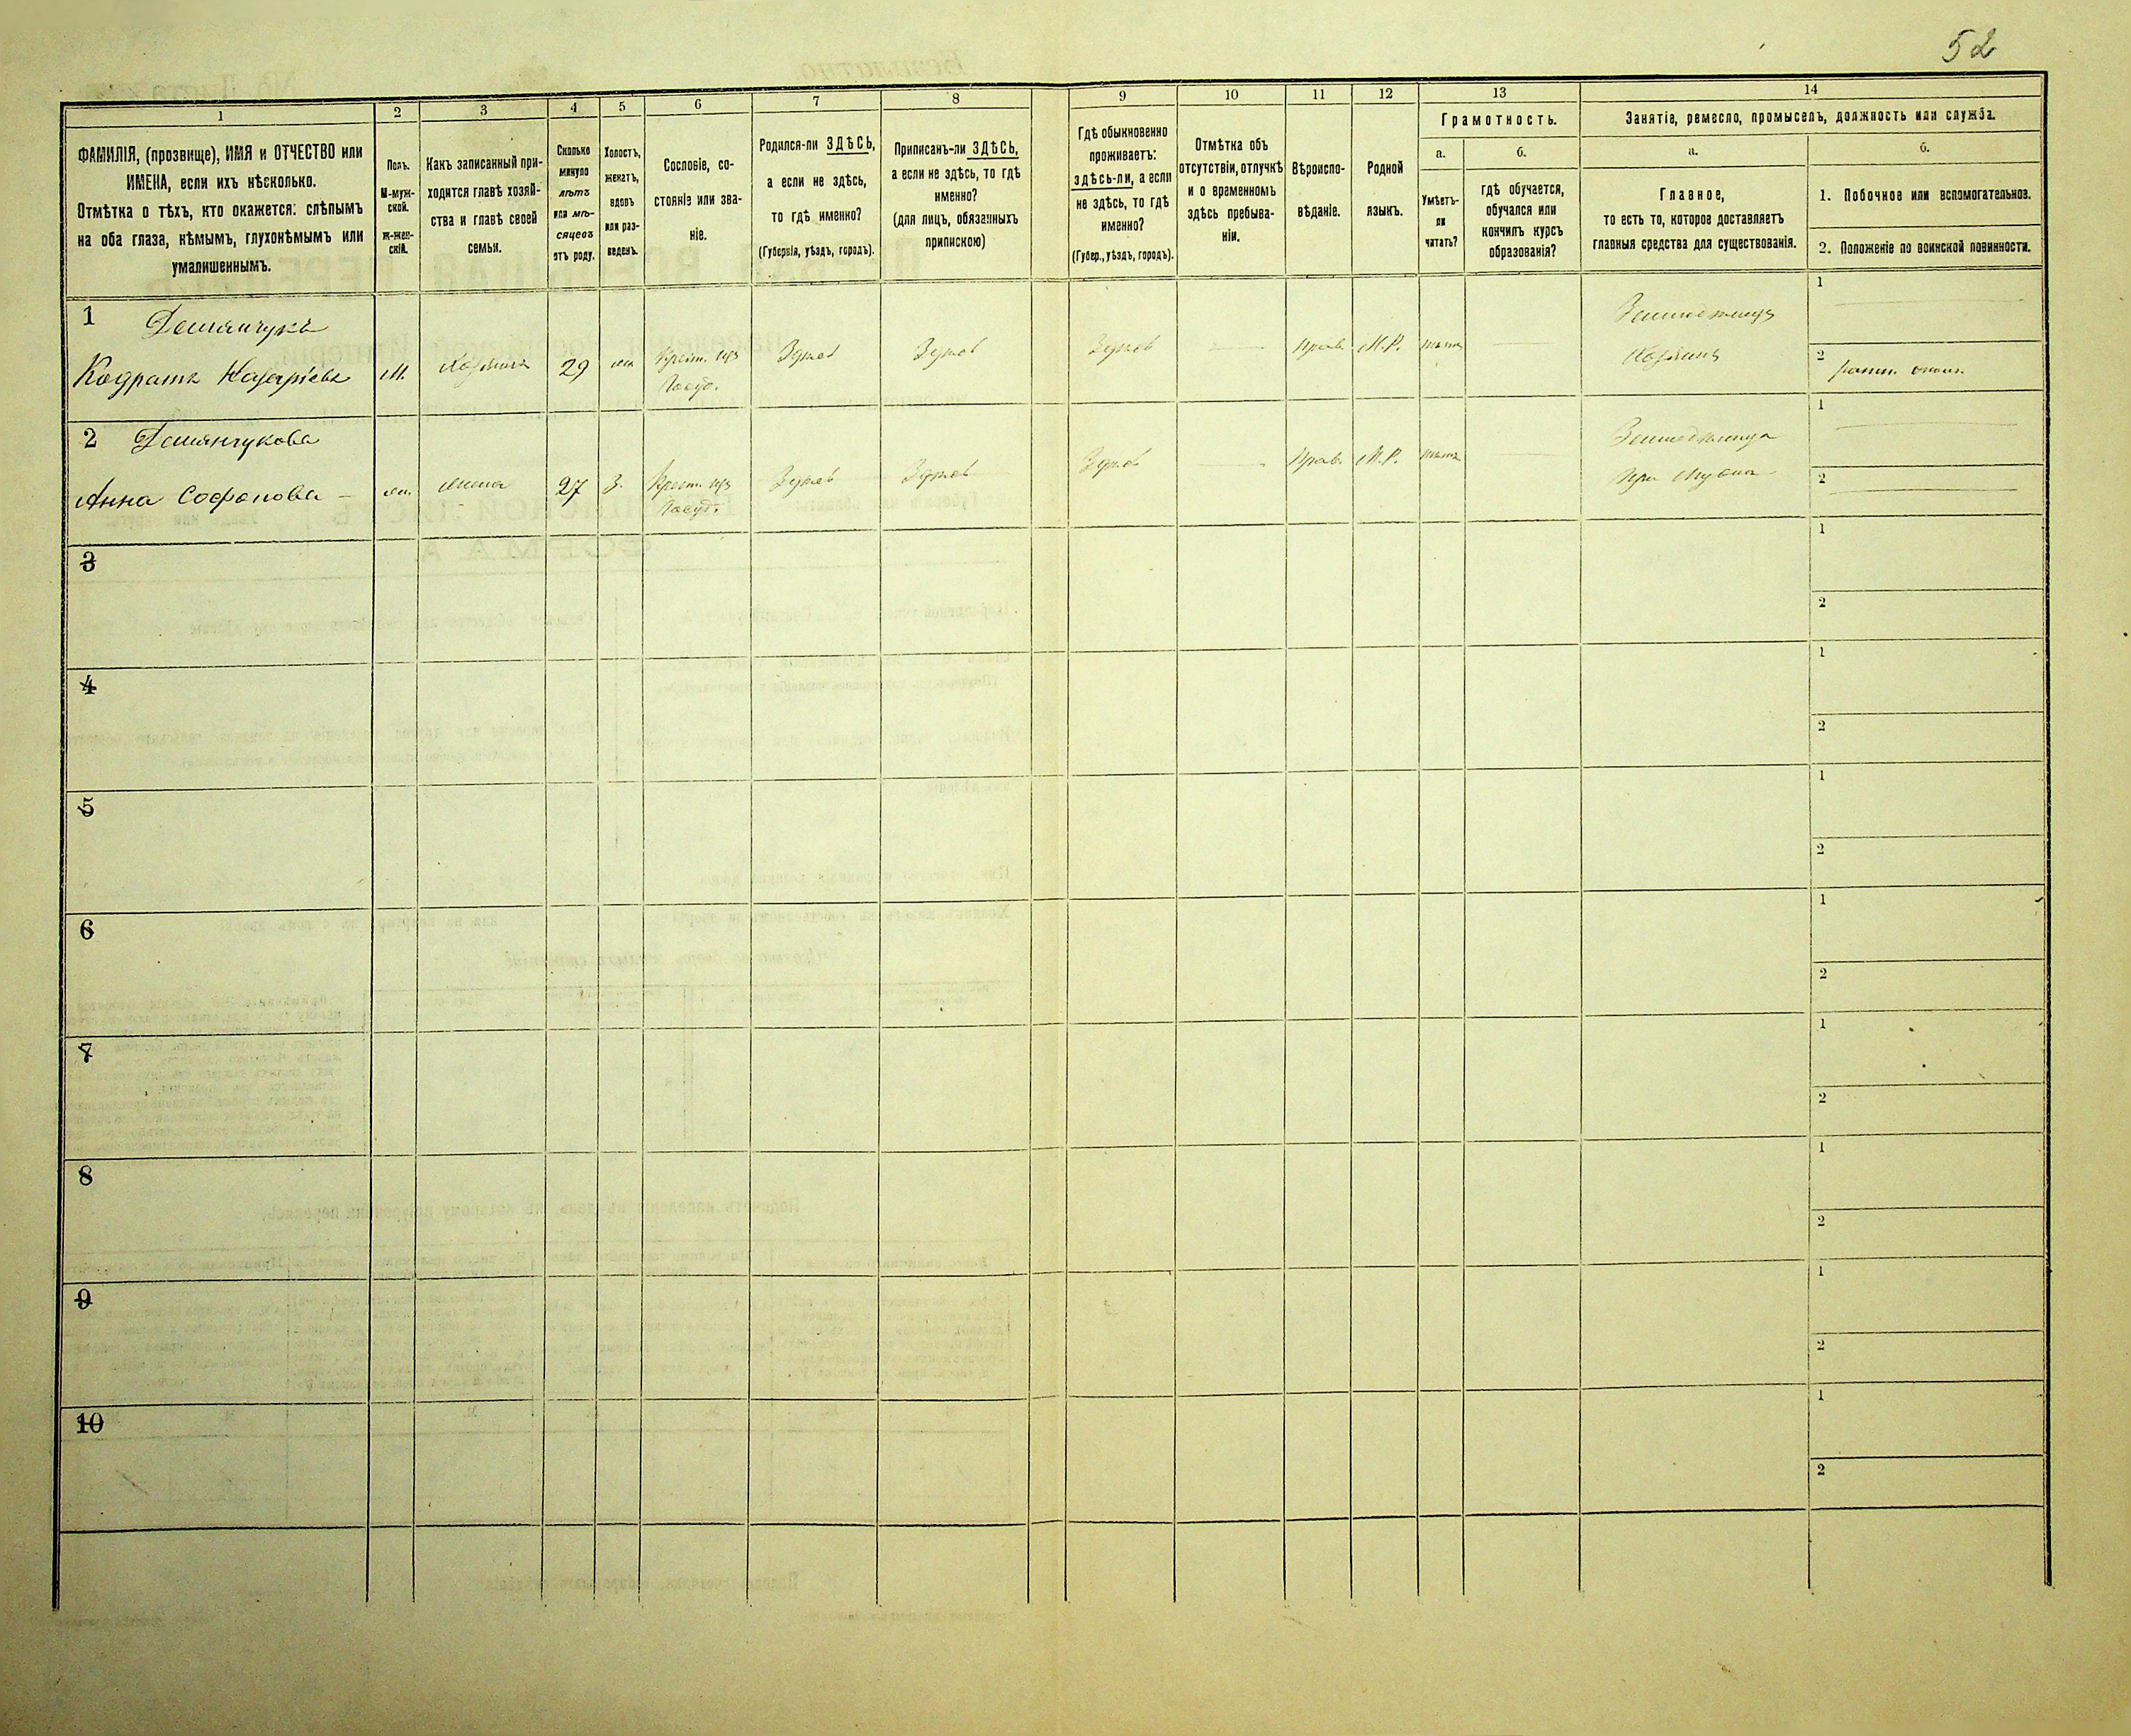 52
1
2
3
4
5
6
7
8
9
10
11
12
13
14
ФАМИЛІЯ, (прозвище), ИМЯ и ОТЧЕСТВО или
ИМЕНА, если ихъ нѣсколько.
Отмѣтка о тѣхъ, кто окажется: слѣпымъ
на оба глаза, нѣмымъ, глухонѣмымъ или
умалишеннымъ.
Полъ.
М-муж-
ской.
Ж-жен-
скій.
Какъ записанный при-
ходится главѣ хозяй-
ства и главѣ своей
семьи.
Сколько
минуло
лѣтъ
или мѣ-
сяцевъ
отъ роду.
Холостъ,
женатъ,
вдовъ
или раз-
веденъ.
Сословіе, со-
стояніе или зва-
ніе.
Родился-ли ЗДѢСЬ,
а если не здѣсь,
то гдѣ именно?
(Губернія, уѣздъ, городъ).
Приписанъ-ли ЗДѢСЬ,
а если не здѣсь, то гдѣ
именно?
(для лицъ, обязанныхъ
припискою)
Гдѣ обыкновенно
проживаетъ:
здѣсь-ли, а если
не здѣсь, то гдѣ
именно?
(Губер., уѣздъ, городъ).
Отмѣтка объ
отсутствіи, отлучкѣ
и о временномъ
здѣсь пребыва-
ніи.
Вѣроиспо-
вѣданіе.
Родной
языкъ.
Грамотность.
а.
Умѣетъ-
ли
читать?
б.
гдѣ обучается,
обучался или
кончилъ курсъ
образованія?
Занятіе, ремесло, промыселъ, должность или служба.
а.
Главное,
то есть то, которое доставляетъ
главныя средства для существованія.
б.
1. Побочное или вспомогательное.
2. Положеніе по воинской повинности.
1 Демянчукъ
Кодратъ Назаріевъ М. Хозяинъ 29 жен. Крест. изъ Госуд. Здѣсь Здѣсь Здѣсь — Прав. М.Р. нѣтъ — Земледѣлецъ Хозяинъ
1 —
2 ратн. опол.
2 Демянчукова
Анна Софонова — жен. жена 27 З. Крест. изъ Госуд. Здѣсь Здѣсь Здѣсь — Прав. М.Р. нѣтъ — Земледѣлица при мужѣ
1 —
2 —
3
1
2
4
1
2
5
1
2
6
1
2
7
1
2
8
1
2
9
1
2
10
1
2